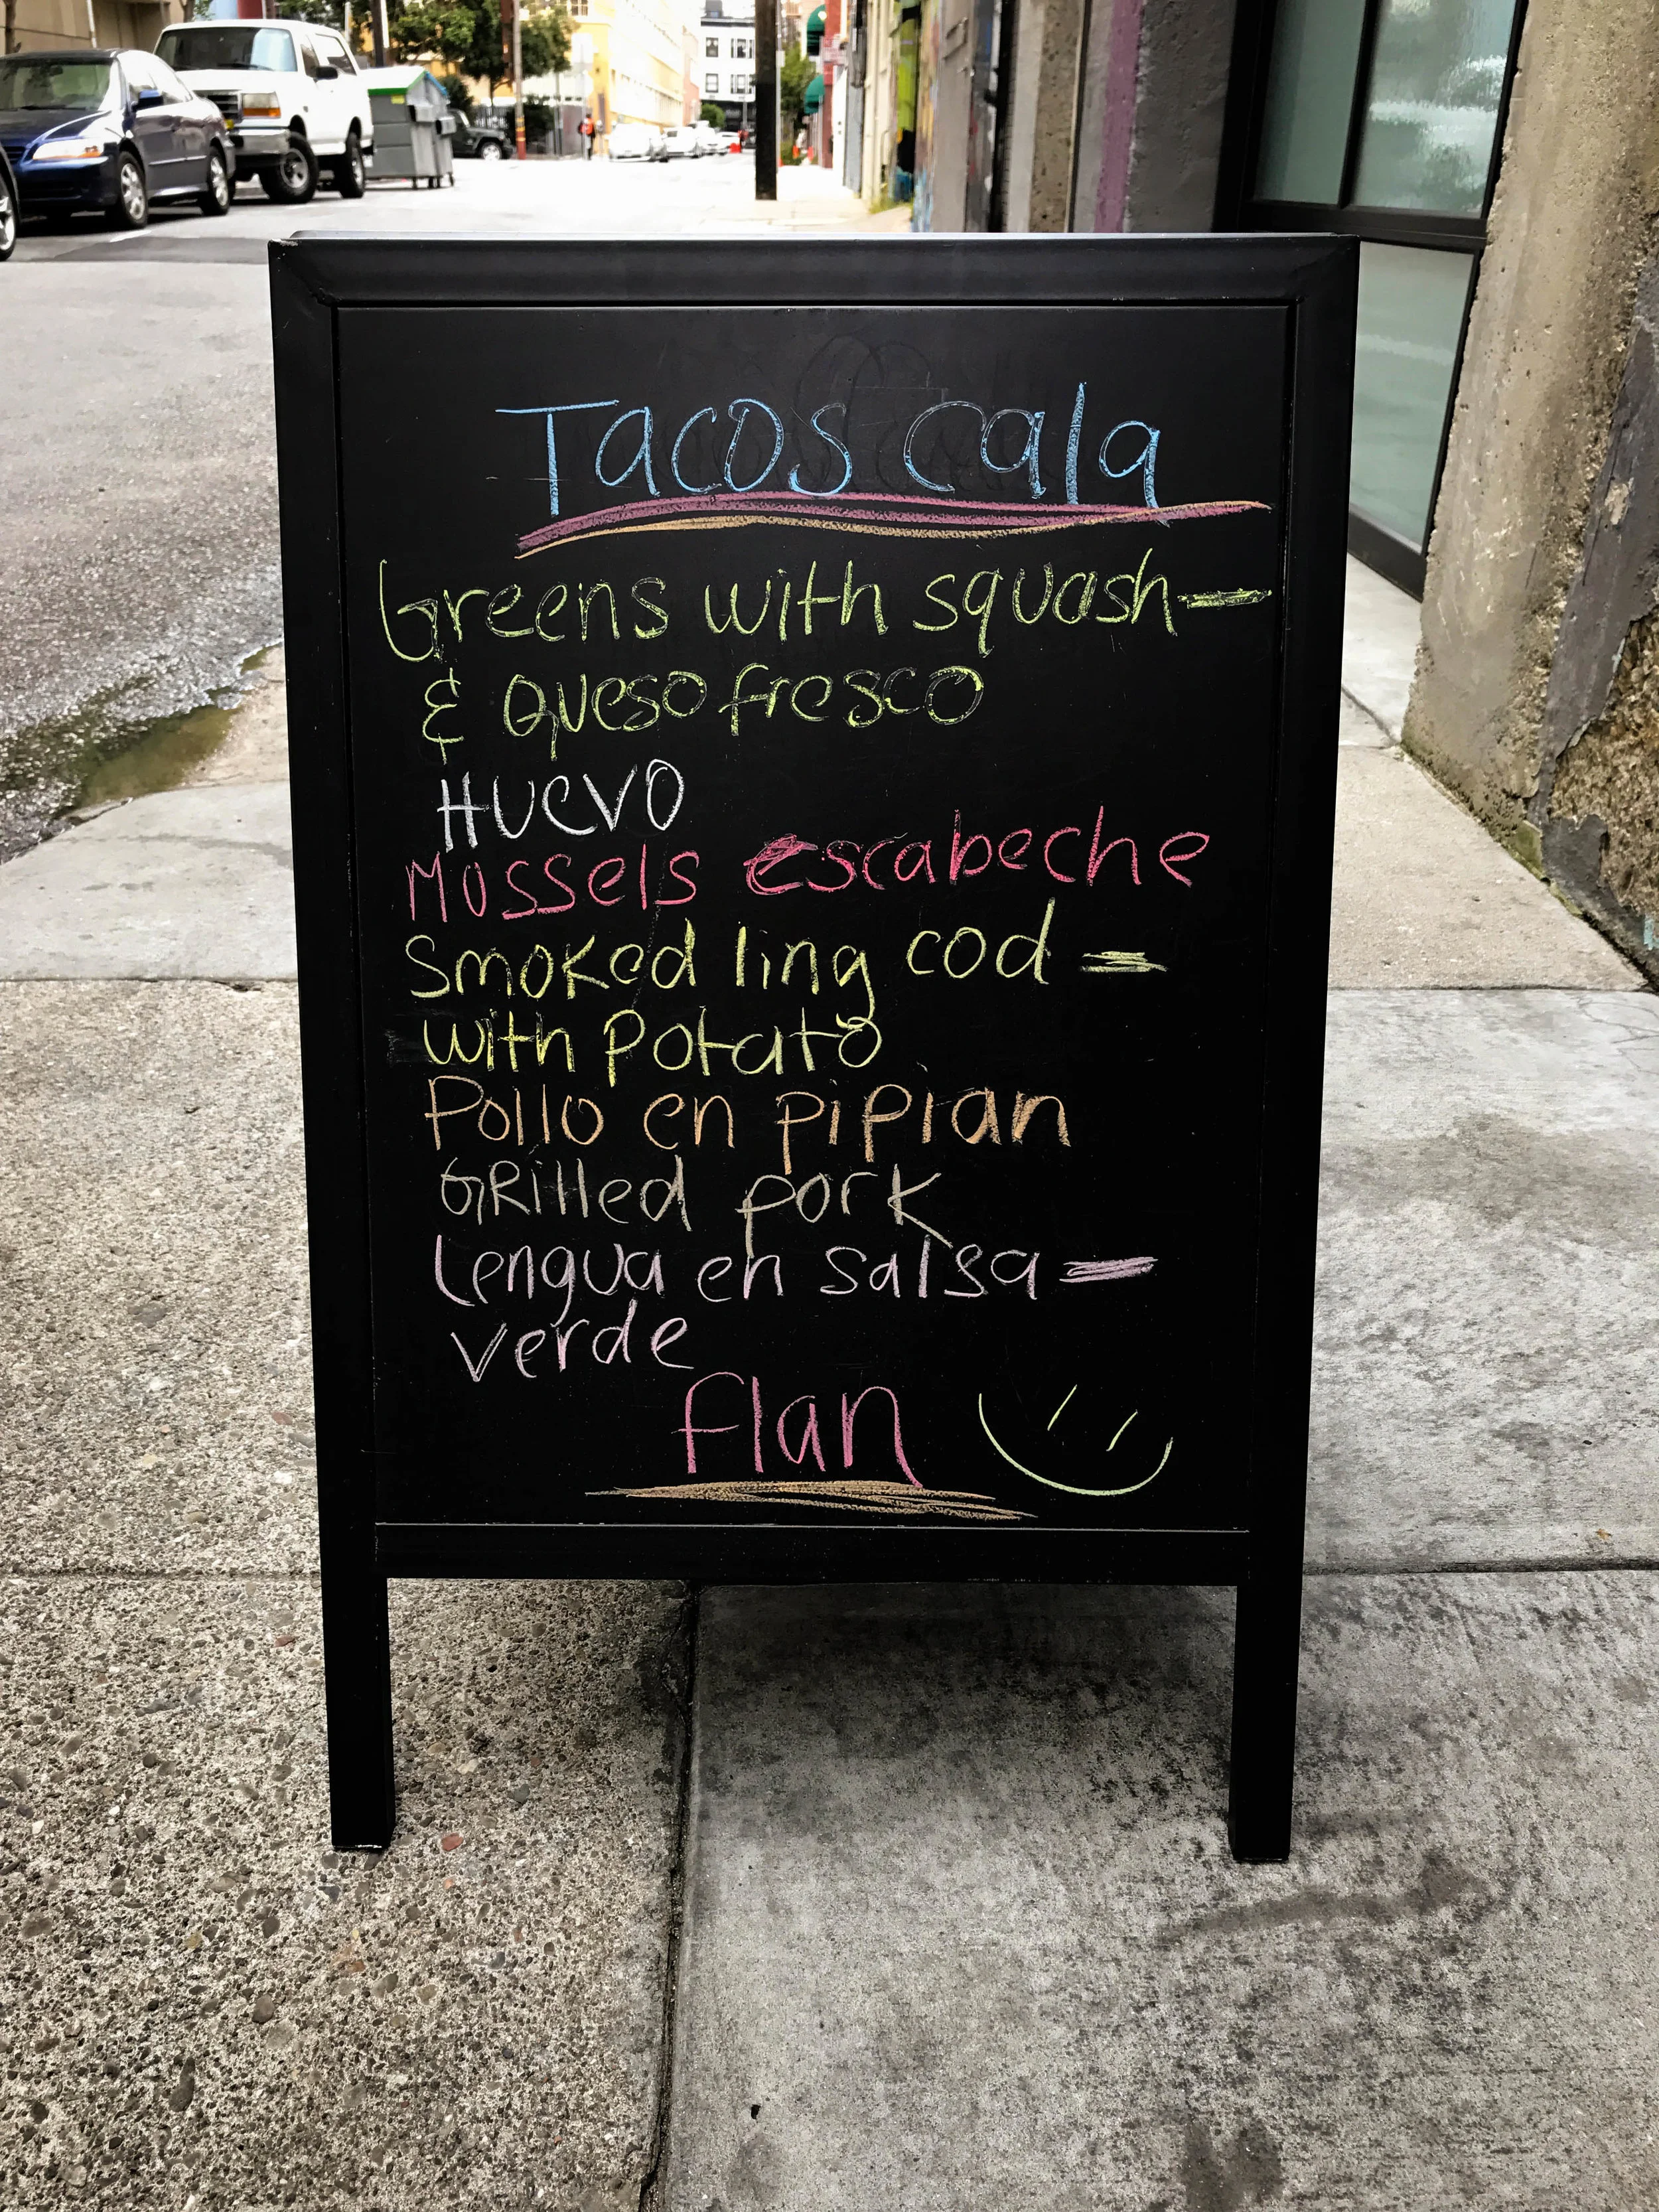 Tacos cala
Greens with squash—
& Queso fresco
Huevo
Mussels escabeche
Smoked ling cod —
with potato
Pollo en pipian
GRilled pork
Lengua en salsa —
verde
flan